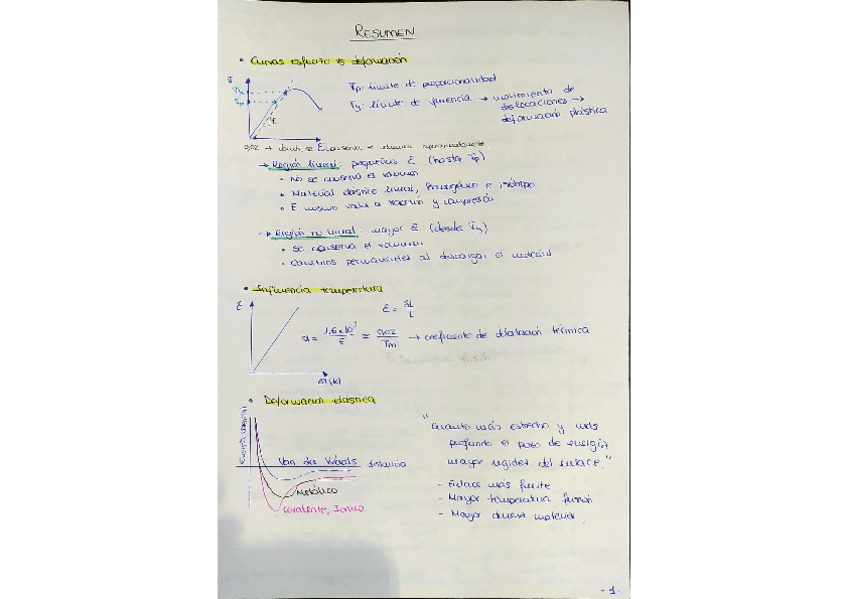 RESUMEN
• Curvas esfuerzo vs deformación
σp: límite de proporcionalidad
σy: límite de fluencia → movimiento de
dislocaciones →
deformación plástica
0,02 → donde se conserva el volumen aproximadamente
→ Región lineal: pequeñas ε (hasta σp)
• No se conserva el volumen
• Material elástico lineal, homogéneo e isótropo
• E mismo valor a tracción y compresión
→ Región no lineal: mayor ε (desde σy)
• Se conserva el volumen
• Cambios permanentes al descargar el material
• Influencia temperatura
ε
ε = δL/L
α = 1,6×10³/E ≈ 0,02/Tm → coeficiente de dilatación térmica
temperatura fusión
ΔT(K)
• Deformación elástica
Energía
Van der Waals distancia
Metálico
Covalente, Iónico
"Cuanto más estrecho y más
profundo el pozo de energía,
mayor rigidez del enlace."
- Enlace más fuerte
- Mayor temperatura fusión
- Mayor dureza material
-1-